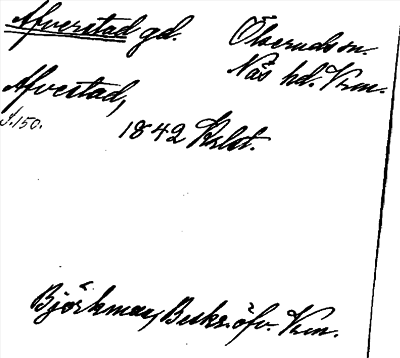 Afverstad gd. Ölseruds sn.
Näs hd. Vrm.
Afvestad,
S. 150. 1842 Krlst.
Björkman, Beskr. öfv. Vrm.